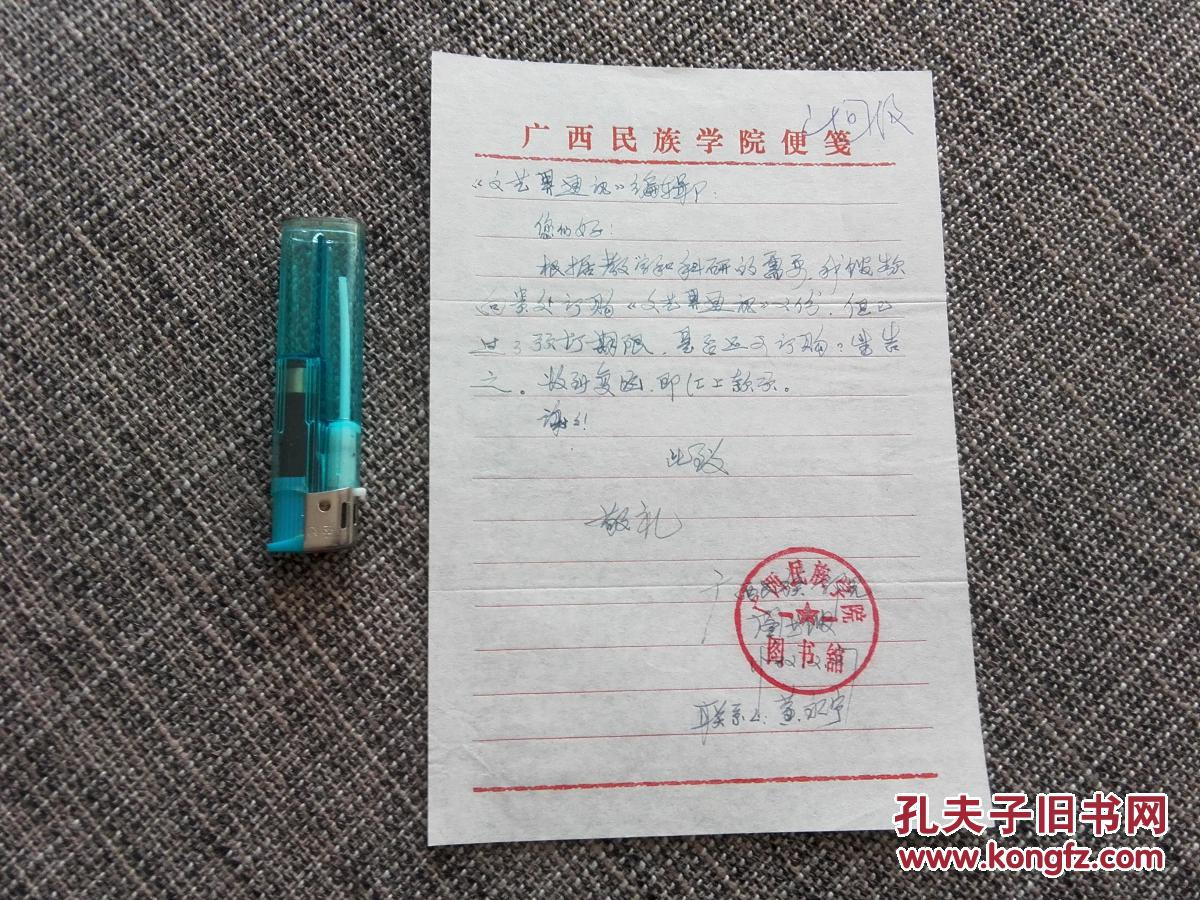 已回复
广西民族学院便笺
《文艺界通讯》编辑部:
您们好:
根据教学和科研的需要,我馆拟
向贵处订购《文艺界通讯》一份,但已
过了预订期限,是否还可订购?请告
之。收到复函,即汇上款项。
谢谢!
此致
敬礼
广西民族学院
图书馆
广西民族学院
图书馆
联系人:黄永宁
孔夫子旧书网
www.kongfz.com